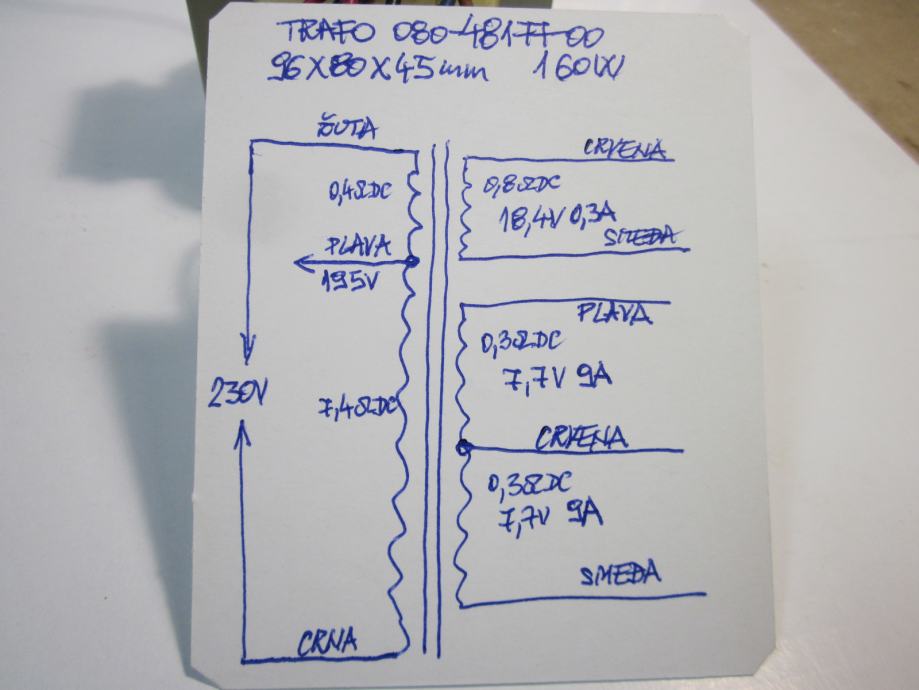 TRAFO 080-48177-00
96X80X45mm 160W
ŽUTA
CRVENA
0,4ΩDC
0,8ΩDC
18,4V 0,3A
PLAVA
SMEĐA
195V
PLAVA
0,3ΩDC
7,7V 9A
230V
7,4ΩDC
CRVENA
0,3ΩDC
7,7V 9A
SMEĐA
CRNA